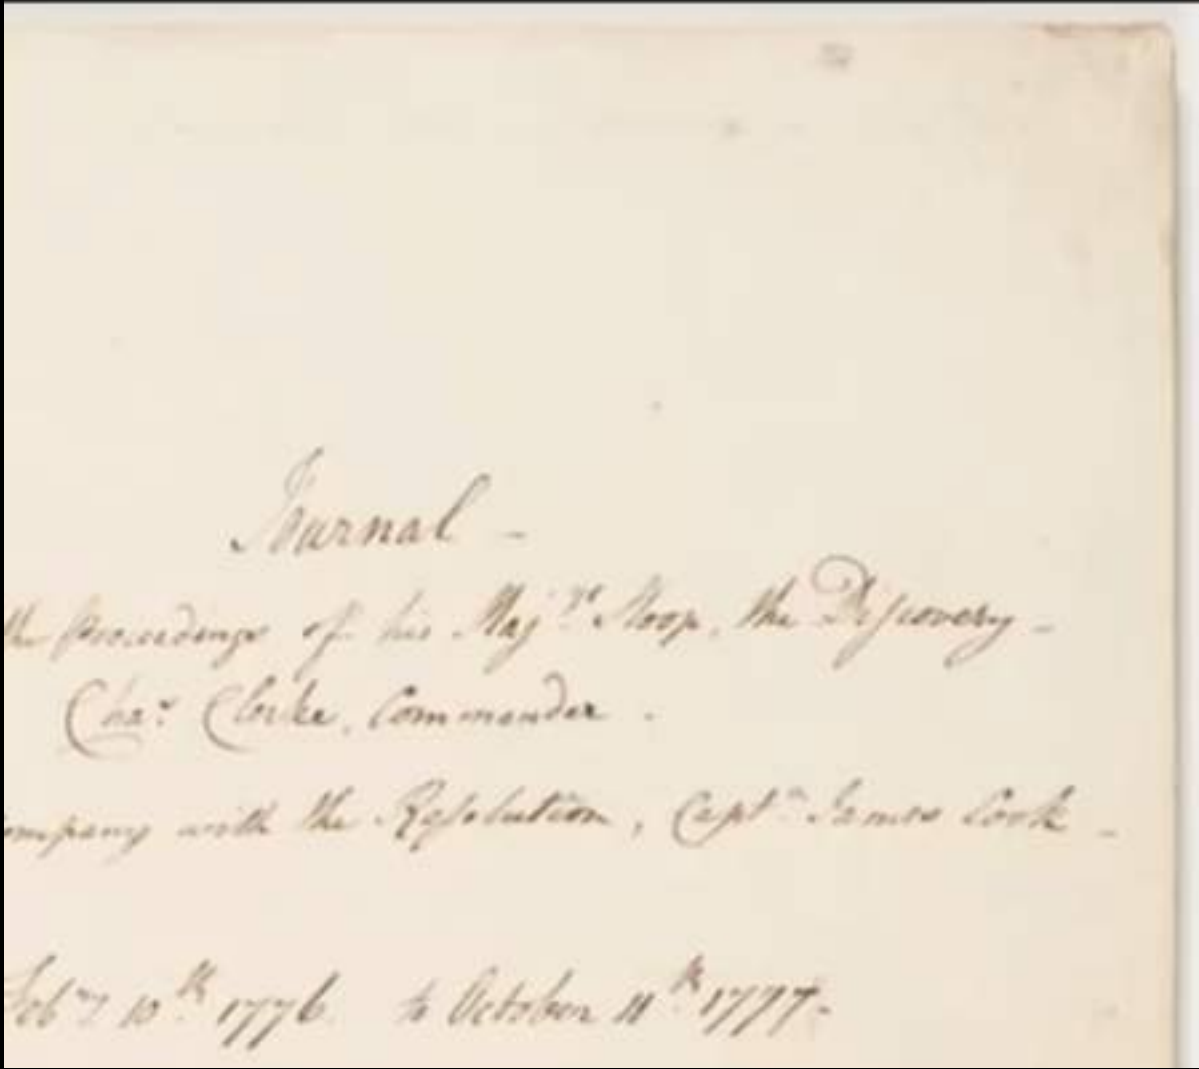 Journal -
the Proceedings of his Maj.ys Sloop, the Discovery -
Cha.s Clerke, Commander .
ompany with the Resolution, Capt.n James Cook -
Feb.ry 10.th 1776. to October 11.th 1777.-